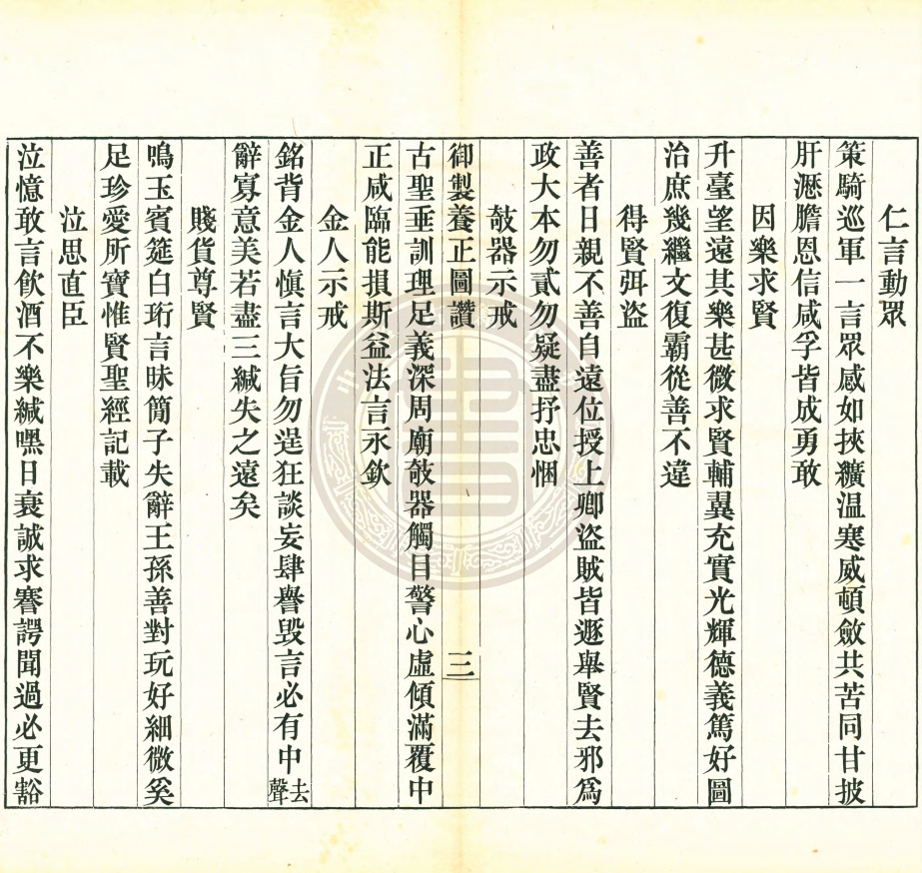 仁言動眾
策騎巡軍一言眾感如挾纊温寒威頓斂共苦同甘披
肝瀝膽恩信咸孚皆成勇敢
因樂求賢
升臺望遠其樂甚微求賢輔翼充實光輝德義篤好圖
治庶幾繼文復霸從善不違
得賢弭盜
善者日親不善自遠位授上卿盜賊皆遯舉賢去邪爲
政大本勿貳勿疑盡抒忠悃
攲器示戒
御製養正圖讚
三
古聖垂訓理足義深周廟攲器觸目警心虛傾滿覆中
正咸臨能損斯益法言永欽
金人示戒
銘背金人愼言大旨勿逞狂談妄肆譽毀言必有中去聲
辭寡意美若盡三緘失之遠矣
賤貨尊賢
鳴玉賓筵白珩言昧簡子失辭王孫善對玩好細微奚
足珍愛所寶惟賢聖經記載
泣思直臣
泣憶敢言飲酒不樂緘嘿日衰誠求謇諤聞過必更豁